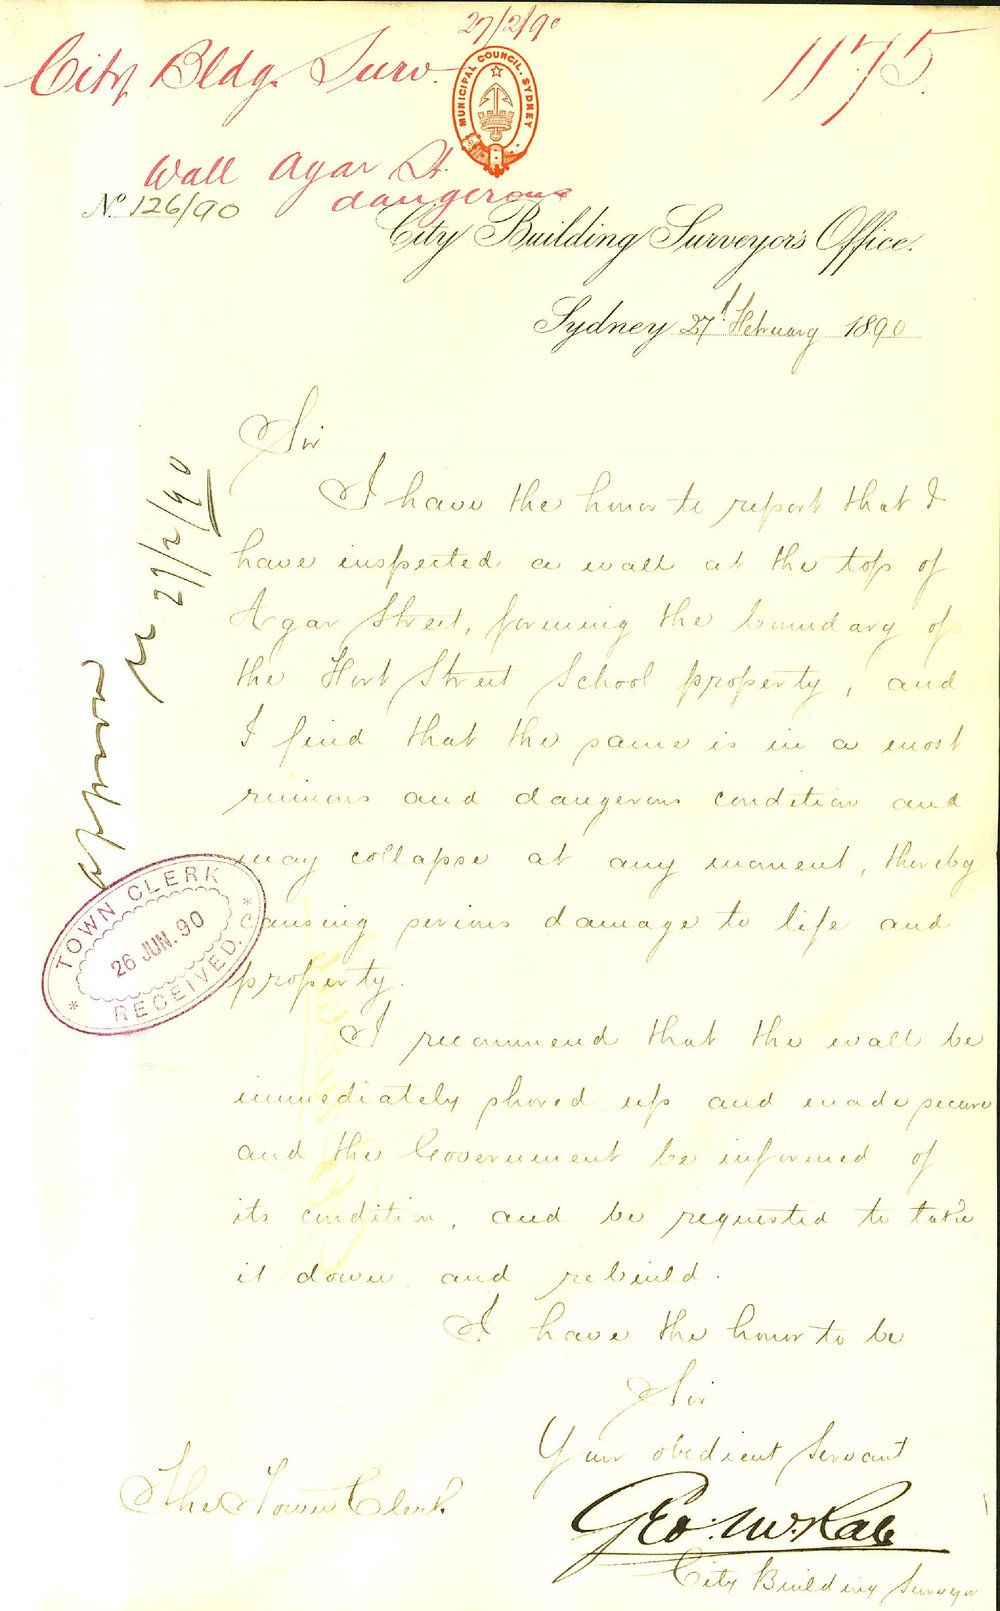 27/2/90
City Bldg. Surv.
1175.
MUNICIPAL COUNCIL. SYDNEY
Wall Agar St.
dangerous
No. 126/90
City Building Surveyor's Office.
Sydney 27th February 1890
Sir
I have the honor to report that I
have inspected a wall at the top of
Agar Street, forming the boundary of
the Fort Street School property, and
I find that the same is in a most
ruinous and dangerous condition and
may collapse at any moment, thereby
causing serious damage to life and
property.
I recommend that the wall be
immediately shored up and made secure
and the Government be informed of
its condition, and be requested to take
it down and rebuild.
I have the honor to be
Sir
Your obedient Servant
Geo. McRae
City Building Surveyor
The Town Clerk
approved
27/2/90
TOWN CLERK
26 JUN. 90
RECEIVED.